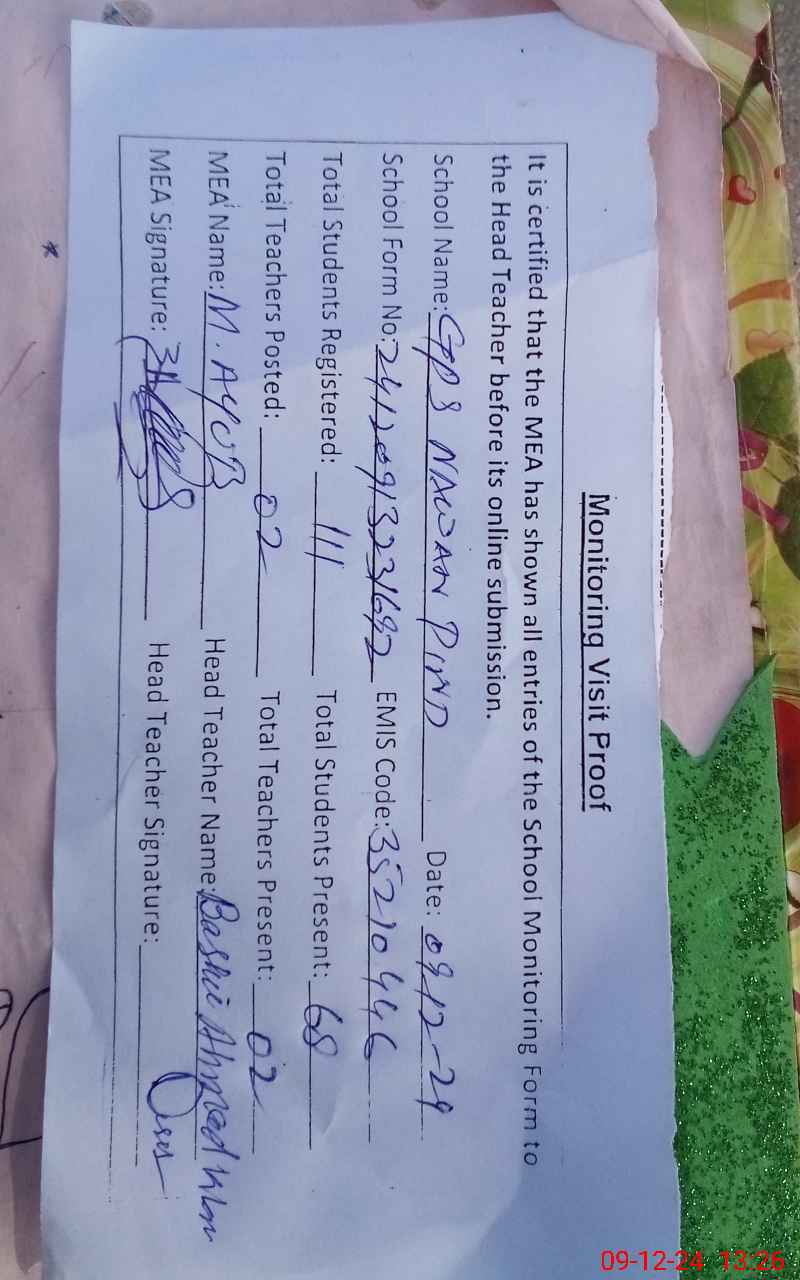 Monitoring Visit Proof
It is certified that the MEA has shown all entries of the School Monitoring Form to
the Head Teacher before its online submission.
School Name: GPS NAWAN PIND Date: 09-12-24
School Form No: EMIS Code: 35210446
Total Students Registered: 111 Total Students Present: 68
Total Teachers Posted: 02 Total Teachers Present: 02
MEA Name: M. AYUB Head Teacher Name: Bashir Ahmed
MEA Signature: Head Teacher Signature:
09-12-24 13:26